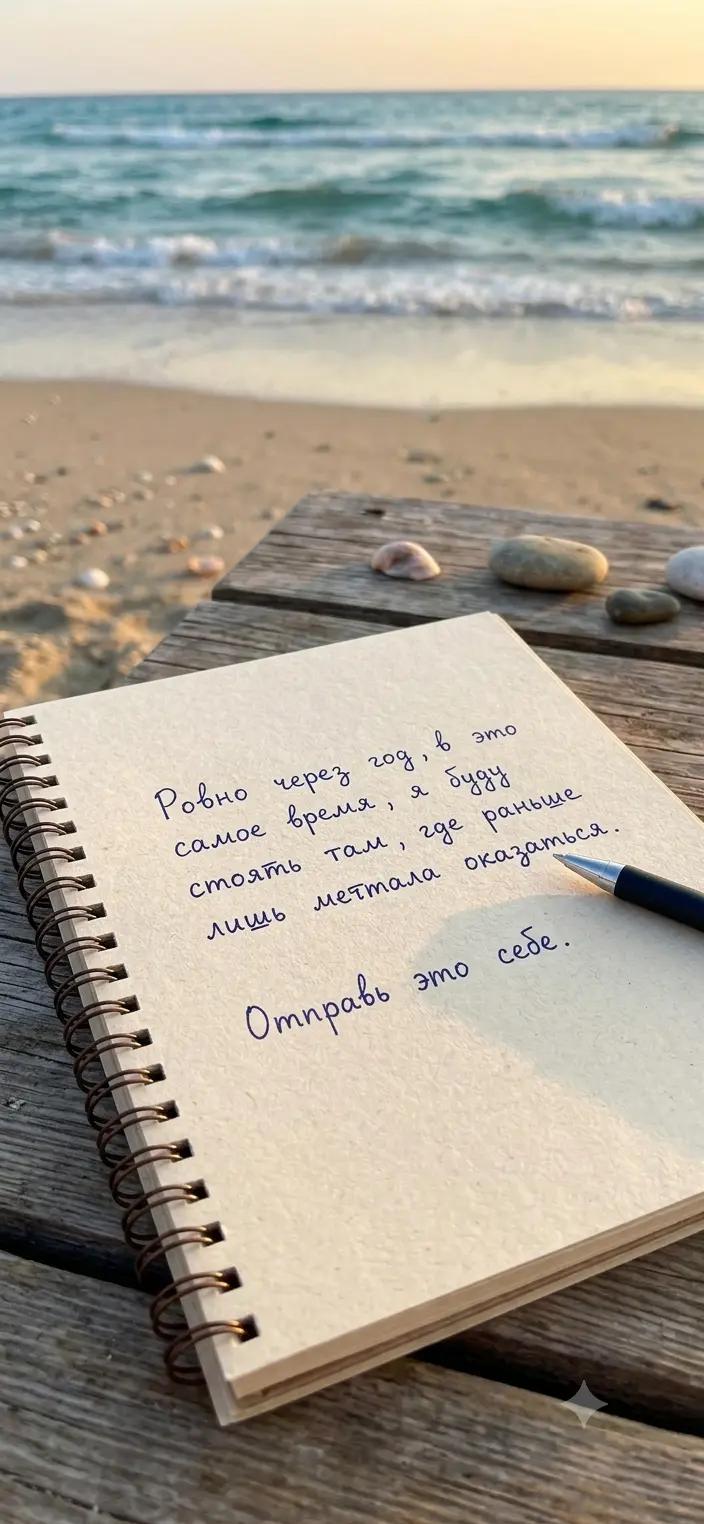 Ровно через год, в это
самое время, я буду
стоять там, где раньше
лишь мечтала оказаться.
Отправь это себе.